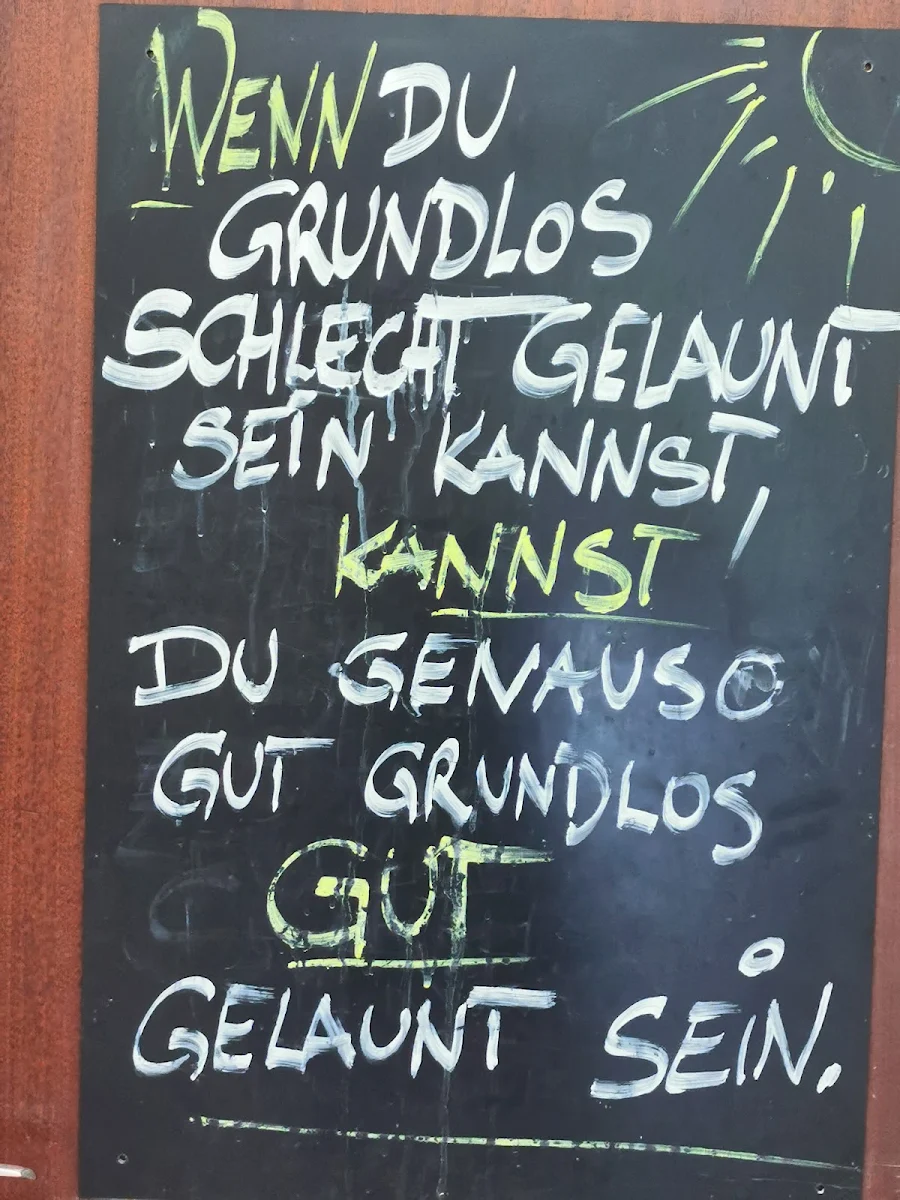 WENN DU
GRUNDLOS
SCHLECHT GELAUNT
SEIN KANNST,
KANNST
DU GENAUSO
GUT GRUNDLOS
GUT
GELAUNT SEIN.